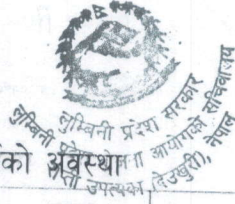 लुम्बिनी प्रदेश सरकार
लुम्बिनी प्रदेश योजना आयोगको सचिवालय
राप्ती उपत्यका (देउखुरी), नेपाल
को अवस्था